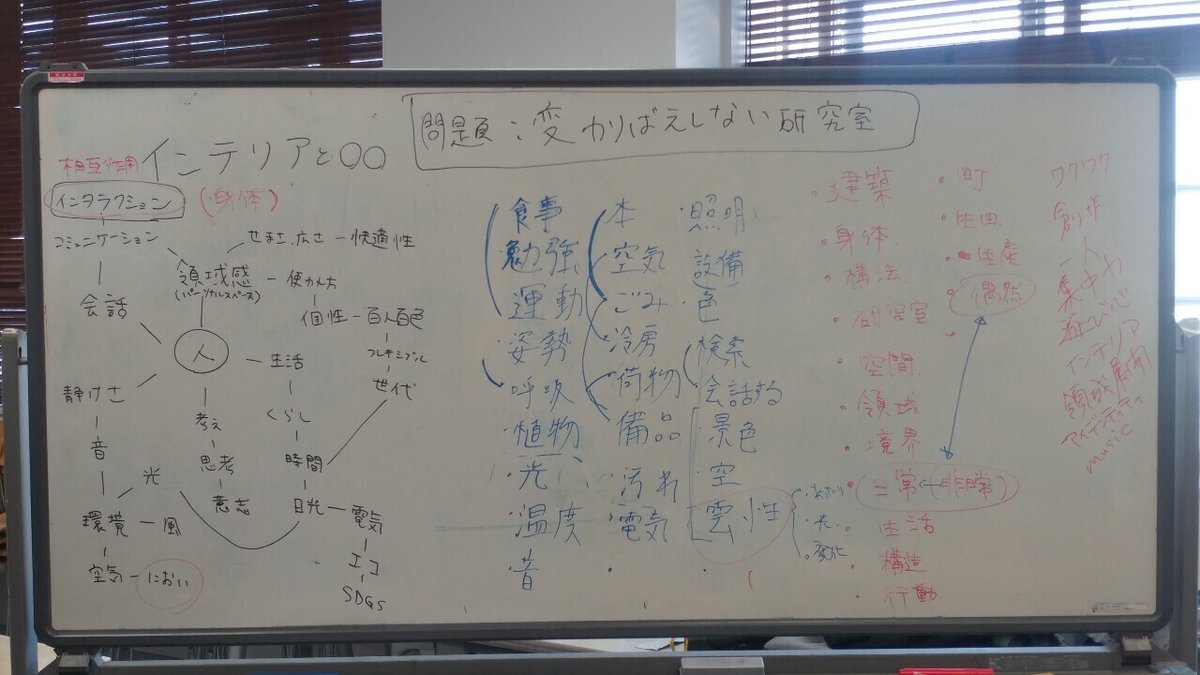 問題：変わりばえしない研究室
相互作用 インテリアと〇〇
インタラクション (身体)
コミュニケーション
せまさ、広さ － 快適性
領域感 － 使われ方
(パーソナルスペース)
会話
個性 － 百人百色
フレキシブル
世代
人
生活
静けさ
くらし
考え
思考
意志
音
時間
光
日光 － 電気
環境 － 風
エコ
空気 － におい
SDGs
食事
勉強
運動
姿勢
呼吸
植物
・光
・温度
・音
本
空気
ごみ
冷房
荷物
備品
・汚れ
・電気
・
・照明
設備
・色
・検索
会話する
・景色
・空
雲 性
・光
・変化
・
・建築
・身体
・構法
・研究室
・空間
・領域
・境界
・日常 ↔ 非常
・生活
・構造
・行動
・町
・生産
・偶然
・
ワクワク
創作
一人
集中力
遊び心
インテリア
領域展開
アイデンティティ
music